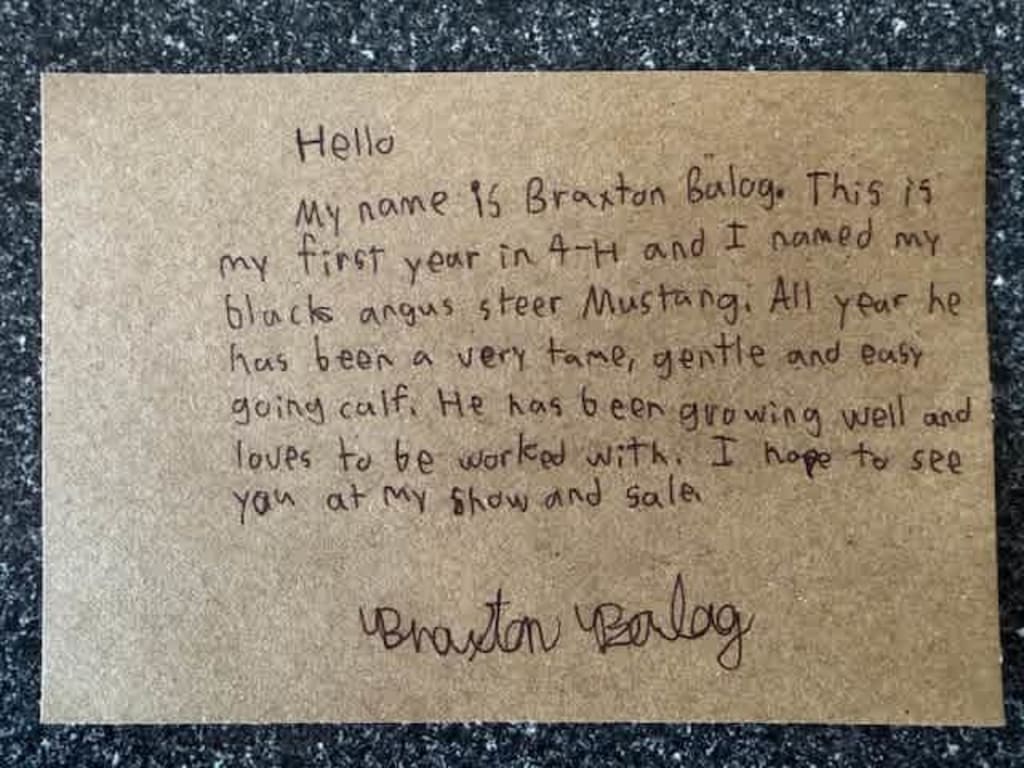 Hello
My name is Braxton Balog. This is
my first year in 4-H and I named my
black angus steer Mustang. All year he
has been a very tame, gentle and easy
going calf. He has been growing well and
loves to be worked with. I hope to see
you at my show and sale.
Braxton Balog